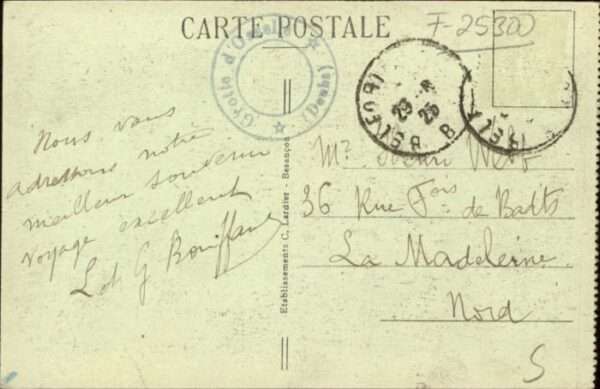 CARTE POSTALE
F-25300
Grotte d'Osselle
(Doubs)
23 - 8
25
Nous vous
adressons notre
meilleur souvenir
voyage excellent
L et G Boniface
Etablissements C. Lardier - Besançon
Mr Henri
36 Rue Fois de Baets
La Madeleine
Nord
S